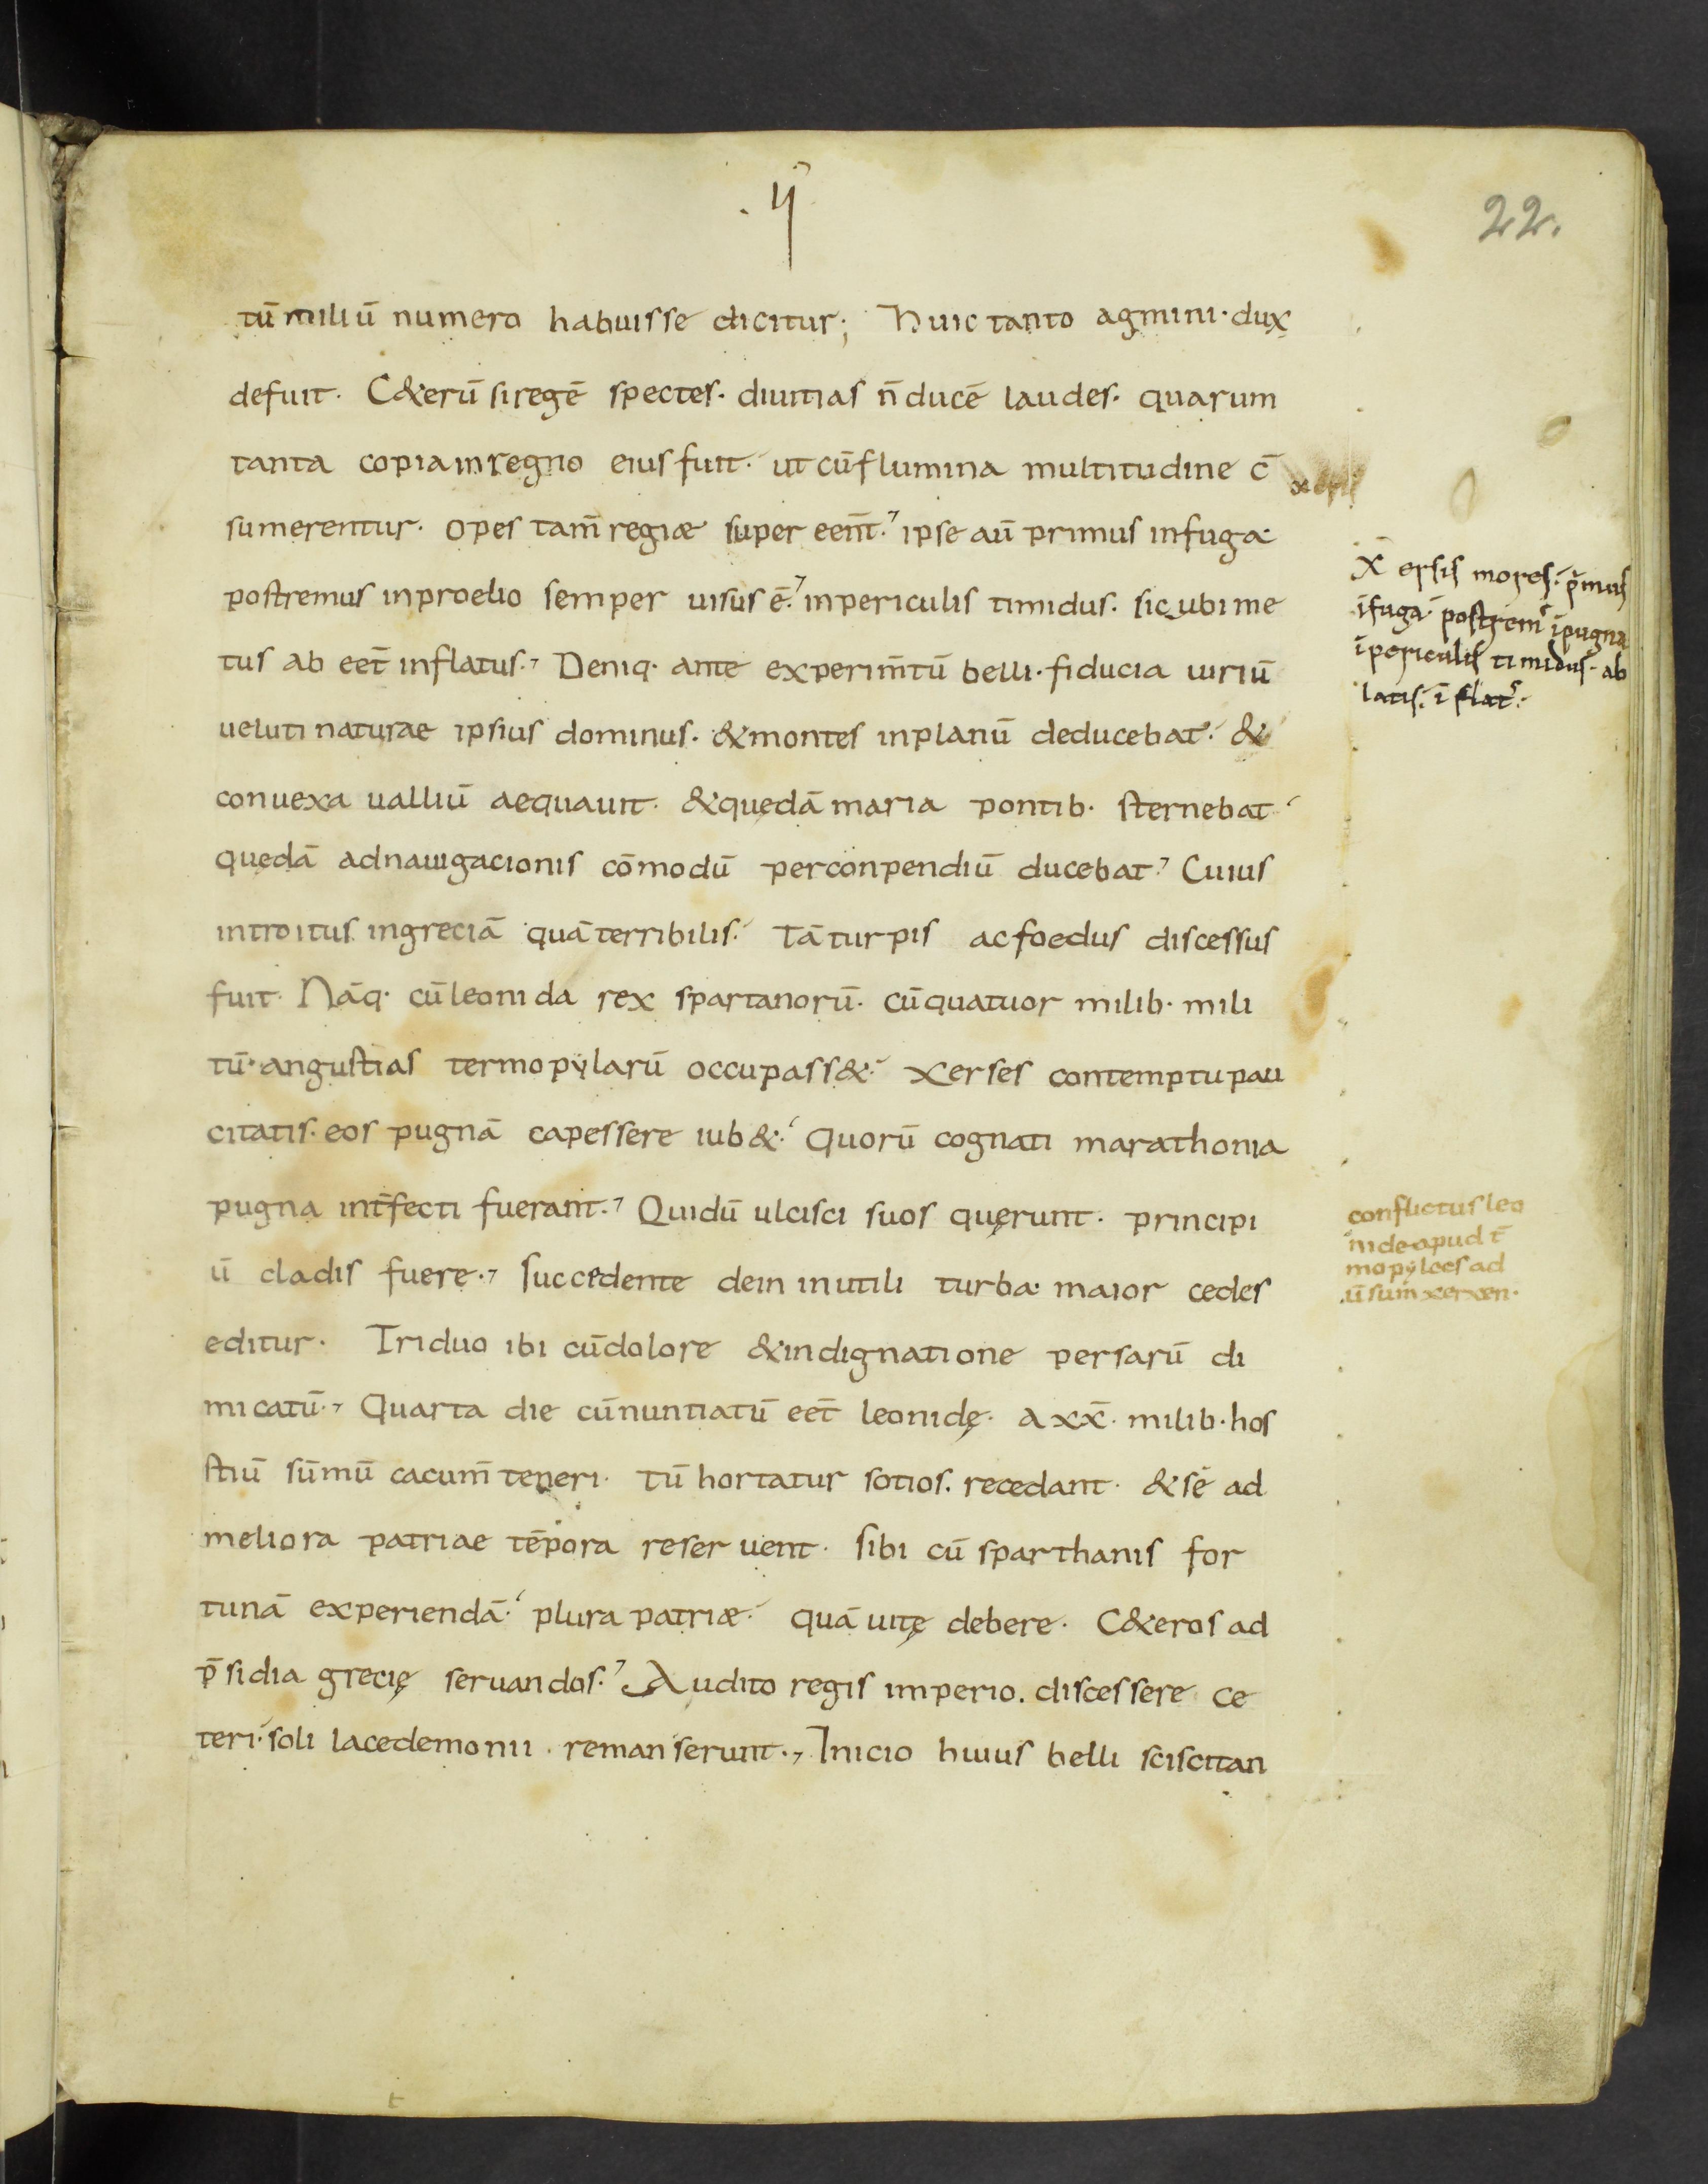 .ıȷ.
22.
tū miliū numero habuisse dicitur; Huic tanto agmini· dux
defuit. C&erū si regē spectes. diuitias n̄ ducē laudes. quarum
tanta copia in regno eius fuit. ut cū flumina multitudine c̄
sumerentur. opes tam̄ regiæ super een̄t. ipse aū primus in fuga
postremus in proelio semper uisus ē. in periculis timidus. sicubi me
tus ab eet̄ inflatus. Deniq· ante experim̄tū belli. fiducia uiriū
ueluti naturae ipsius dominus. & montes in planū deducebat. &
conuexa ualliū aequauit. & quędā maria pontib· sternebat
quedā ad nauigacionis cōmodū per conpendiū ducebat. Cuius
introitus in greciā quā terribilis. Tā turpis ac foedus discessus
fuit. Nāq· cū leonida rex spartanorū. cū quatuor milib· mili
tū. angustias termopylarū occupass&. xerses contemptu pau
citatis. eos pugnā capessere iub&. Quorū cognati marathonia
pugna int̄fecti fuerant. Qui dū ulcisci suos quęrunt. principi
ū cladis fuere. succedente dein inutili turba maior cedes
editur. Triduo ibi cū dolore & indignatione persarū di
micatū. Quarta die cū nuntiatū eet̄ leonidę. a xx̄. milib· hos
stiū sūmū cacum̄ teneri. tū hortatur sotios. recedant. & sé ad
meliora patriae tēpora reseruent. sibi cū sparthanis for
tunā experiendā. plura patriæ quā uitę debere. C&eros ad
p̄sidia grecię seruandos. Audito regis imperio. discessere ce
teri. soli lacedemonii. remanserunt. Inicio huius belli sciscitan
X ersis mores. p̄mus
īfuga. postrem᾽ īpugna
īpericulis timidus. ab
latis. īflat᾽.
conflictus leo
nide apud t̄
mopylees ad
.ūsum̄ xerxen.